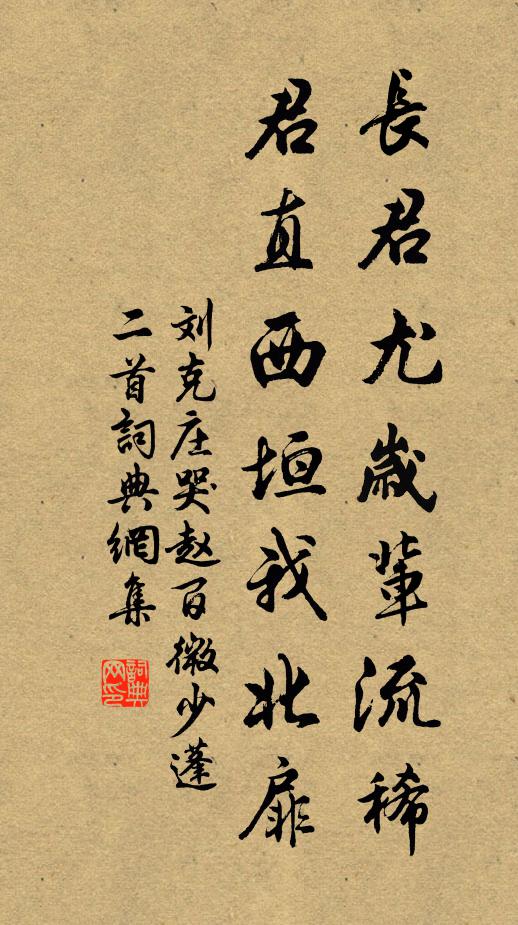 長君尤歲輩流稀
君直西垣我北扉
刘克庄哭赵百微少蓬
二首詞典網集
詞典网印